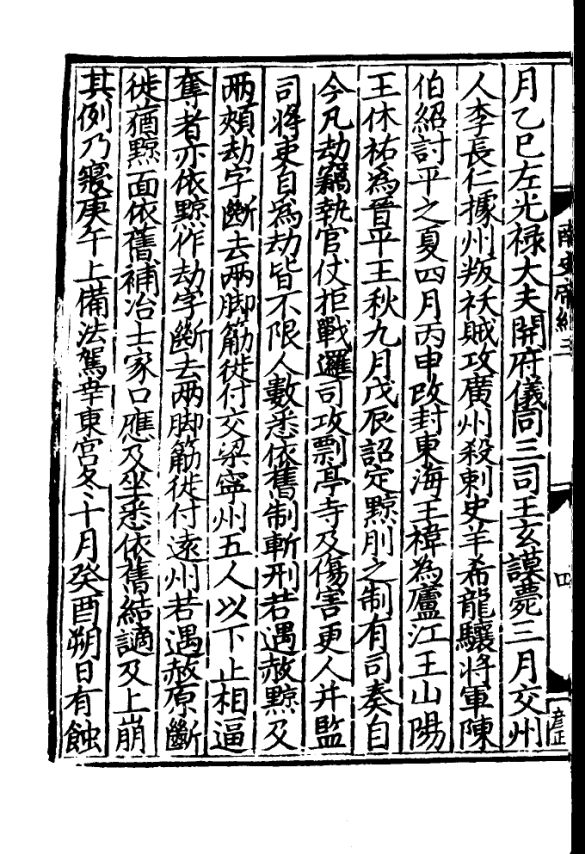 月乙巳左光禄大夫開府儀同三司王玄謨薨三月交州
人李長仁據州叛祅賊攻廣州殺刺史羊希龍驤將軍陳
伯紹討平之夏四月丙申改封東海王禕為廬江王山陽
王休祐為晉平王秋九月戊辰詔定黥刖之制有司奏自
今凡劫竊執官仗拒戰邏司攻剽亭寺及傷害吏人并監
司將吏自為劫皆不限人數悉依舊制斬刑若遇赦黥及
兩頰劫字斷去兩脚筋徙付交梁寧州五人以下止相逼
奪者亦依黥作劫字斷去兩脚筋徙付遠州若遇赦原斷
徙猶黥面依舊補冶士家口應及坐悉依舊結讁及上崩
其例乃寢庚午上備法駕幸東宫冬十月癸酉朔日有蝕
南史帝紀三
四